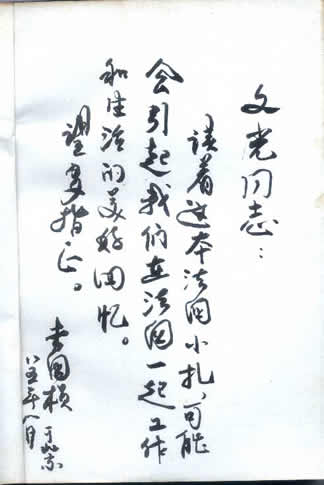 文光同志：
读着这本法国小扎，可能
会引起我们在法国一起工作
和生活的美好回忆。
望多指正。
李国桢 于北京
八五年八月